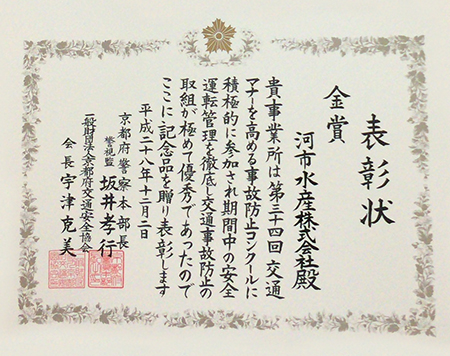 表彰状
金賞
河市水産株式会社殿
貴事業所は第三十四回交通
マナーを高める事故防止コンクールに
積極的に参加され期間中の安全
運転管理を徹底し交通事故防止の
取組が極めて優秀であったので
ここに記念品を贈り表彰します
平成二十八年十二月二日
京都府警察本部長
警視監 坂井孝行
一般財団法人京都府交通安全協会
会長 宇津克美